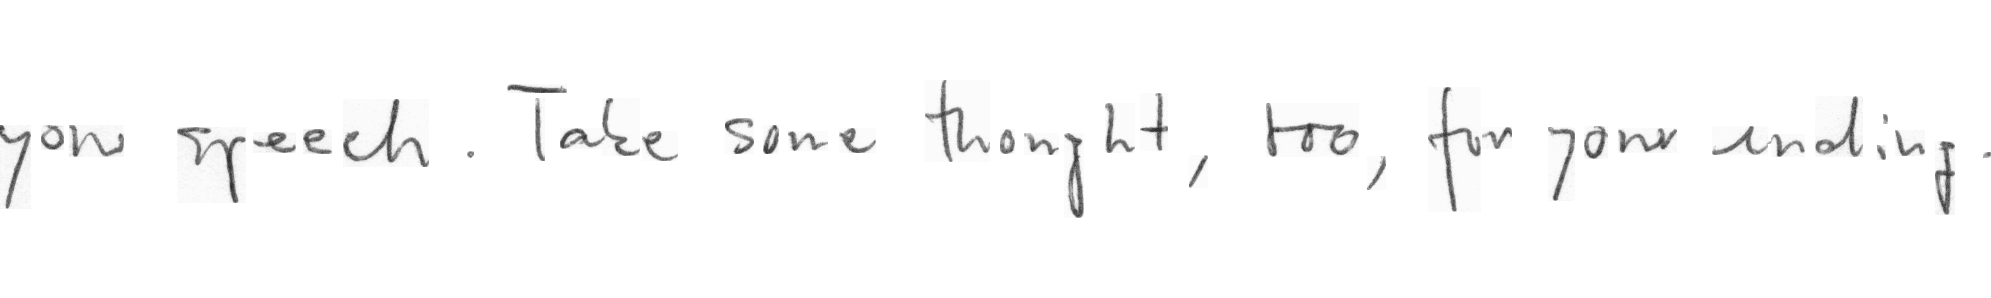 your speech. Take some thought, too, for your ending.